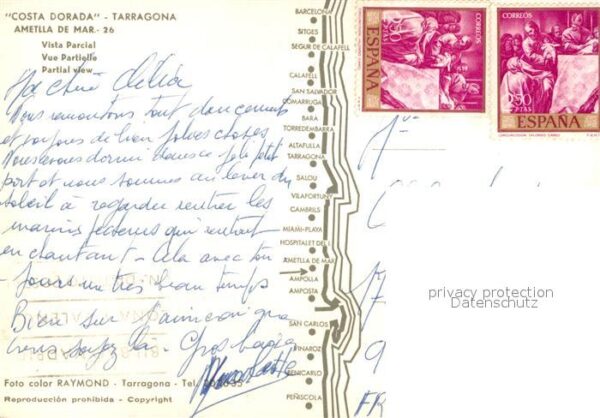 "COSTA DORADA" - TARRAGONA
AMETLLA DE MAR.- 26
Vista Parcial
Vue Partielle
Partial view
Ma chère
Nous remontons tout doucement
et toujours de bien jolies choses
Nous avons dormi dans ce joli petit
port et nous sommes au lever du
soleil à regarder rentrer les
marins pêcheurs qui rentrent
en chantant - Cela avec tou
- jours un très beau temps
Bien sur
Gros
Foto color RAYMOND - Tarragona - Tel.
Reproducción prohibida - Copyright
BARCELONA
SITGES
SEGUR DE CALAFELL
CALAFELL
SAN SALVADOR
COMARRUGA
BARA
TORREDEMBARRA
ALTAFULLA
TARRAGONA
SALOU
VILAFORTUNY
CAMBRILS
MIAMI-PLAYA
HOSPITALET DEL I.
AMETLLA DE MAR
AMPOLLA
AMPOSTA
SAN CARLOS
VINAROZ
BENICARLO
PEÑISCOLA
CORREOS
2,50
PTAS
ESPAÑA
CORREOS
2,50
PTAS
ESPAÑA
privacy protection
Datenschutz
FR